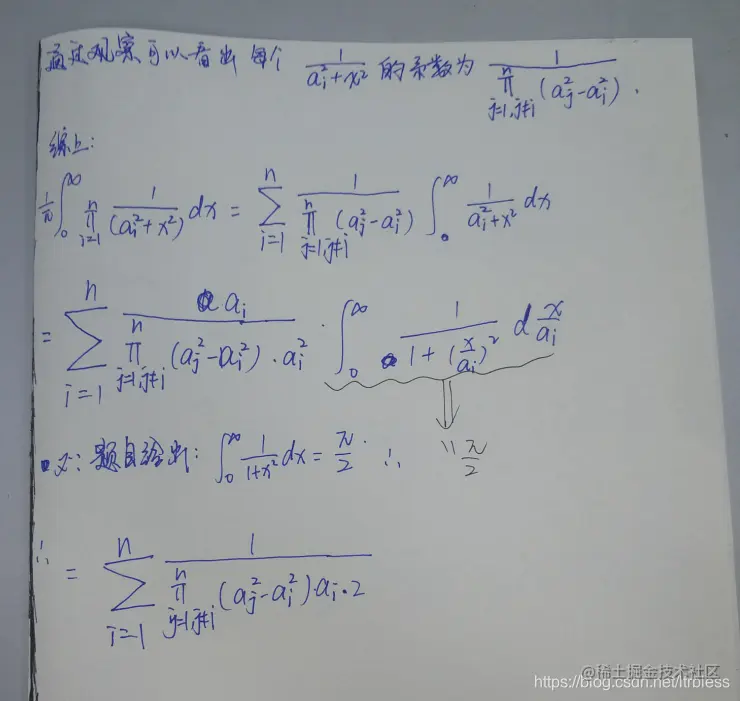 通过观察可以看出 每个 $\frac{1}{a_i^2+x^2}$ 的系数为 $\frac{1}{\prod_{j=1,j\neq i}^{n}(a_j^2-a_i^2)}$.
综上:
$\frac{1}{\pi}\int_0^\infty \prod_{i=1}^{n} \frac{1}{(a_i^2+x^2)}dx = \sum_{i=1}^{n} \frac{1}{\prod_{j=1,j\neq i}^{n}(a_j^2-a_i^2)} \int_0^\infty \frac{1}{a_i^2+x^2}dx$
$= \sum_{i=1}^{n} \frac{a_i}{\prod_{j=1,j\neq i}^{n}(a_j^2-a_i^2)\cdot a_i^2} \cdot \int_0^\infty \frac{1}{1+(\frac{x}{a_i})^2} d\frac{x}{a_i}$
又∵ 题目给出: $\int_0^\infty \frac{1}{1+x^2}dx = \frac{\pi}{2}$. ∴ "$\frac{\pi}{2}$
∴ $= \sum_{i=1}^{n} \frac{1}{\prod_{j=1,j\neq i}^{n}(a_j^2-a_i^2)\cdot a_i\cdot 2}$
@稀土掘金技术社区
https://blog.csdn.net/ltrbless